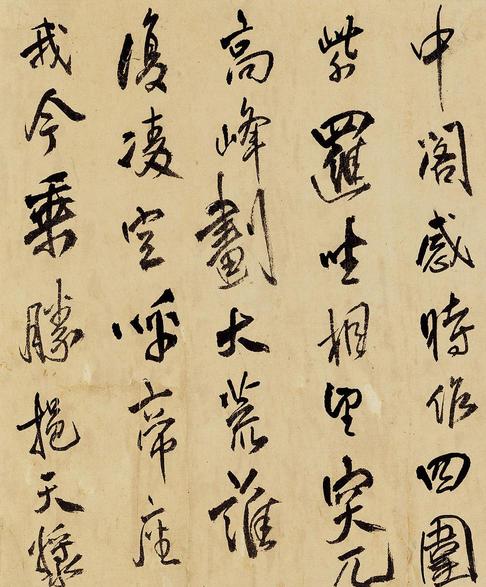 中閣感時作四圍
紫邏吐相望突兀
高峰劃大荒誰
復凌空呼帝座
我今乘勝挹天漿